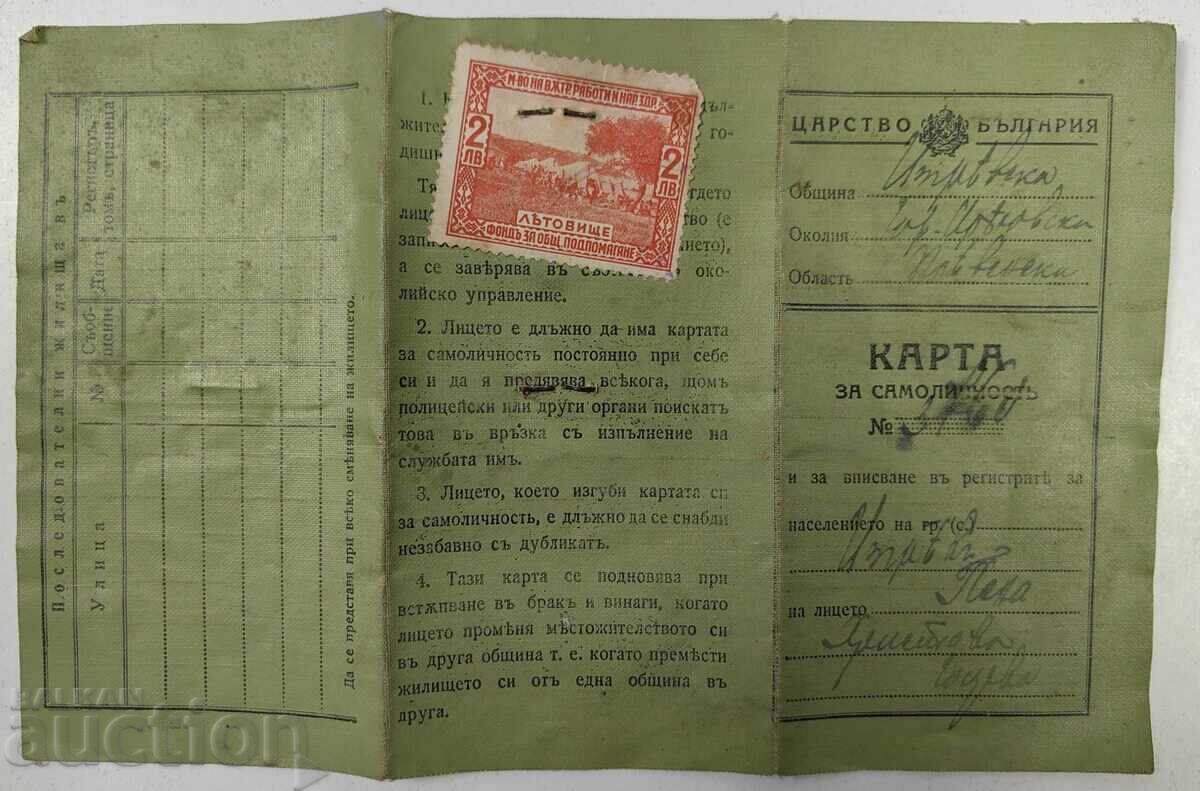 Последователни жилища въ
Регистъръ, томъ, страница
Дата
Съоб-
щение
№
Улица
Да се представя при всѣко смѣняване на жилището.
1.
дъл-
жител
го-
дишн
Тя
гдето
лице
тво (е
запи
нието),
а се завѣрява въ око-
лийско управление.
М-ВО НА ВѪТР. РАБОТИ И НАР. ЗДР.
2 ЛВ
2 ЛВ
ЛѢТОВИЩЕ
ФОНДЪ ЗА ОБЩ. ПОДПОМАГАНЕ
2. Лицето е длъжно да има картата
за самоличность постоянно при себе
си и да я предявява всѣкога, щомъ
полицейски или други органи поискатъ
това въ връзка съ изпълнение на
службата имъ.
3. Лицето, което изгуби картата си
за самоличность, е длъжно да се снабди
незабавно съ дубликатъ.
4. Тази карта се подновява при
встѫпване въ бракъ и винаги, когато
лицето промѣня мѣстожителството си
въ друга община т. е. когато премѣсти
жилището си отъ една община въ
друга.
ЦАРСТВО БЪЛГАРИЯ
Община
Околия
Область
КАРТА
ЗА САМОЛИЧНОСТЬ
№
и за вписване въ регистритѣ за
населението на гр. (с.)
на лицето Пена
Христова
БАЛКАН
auction